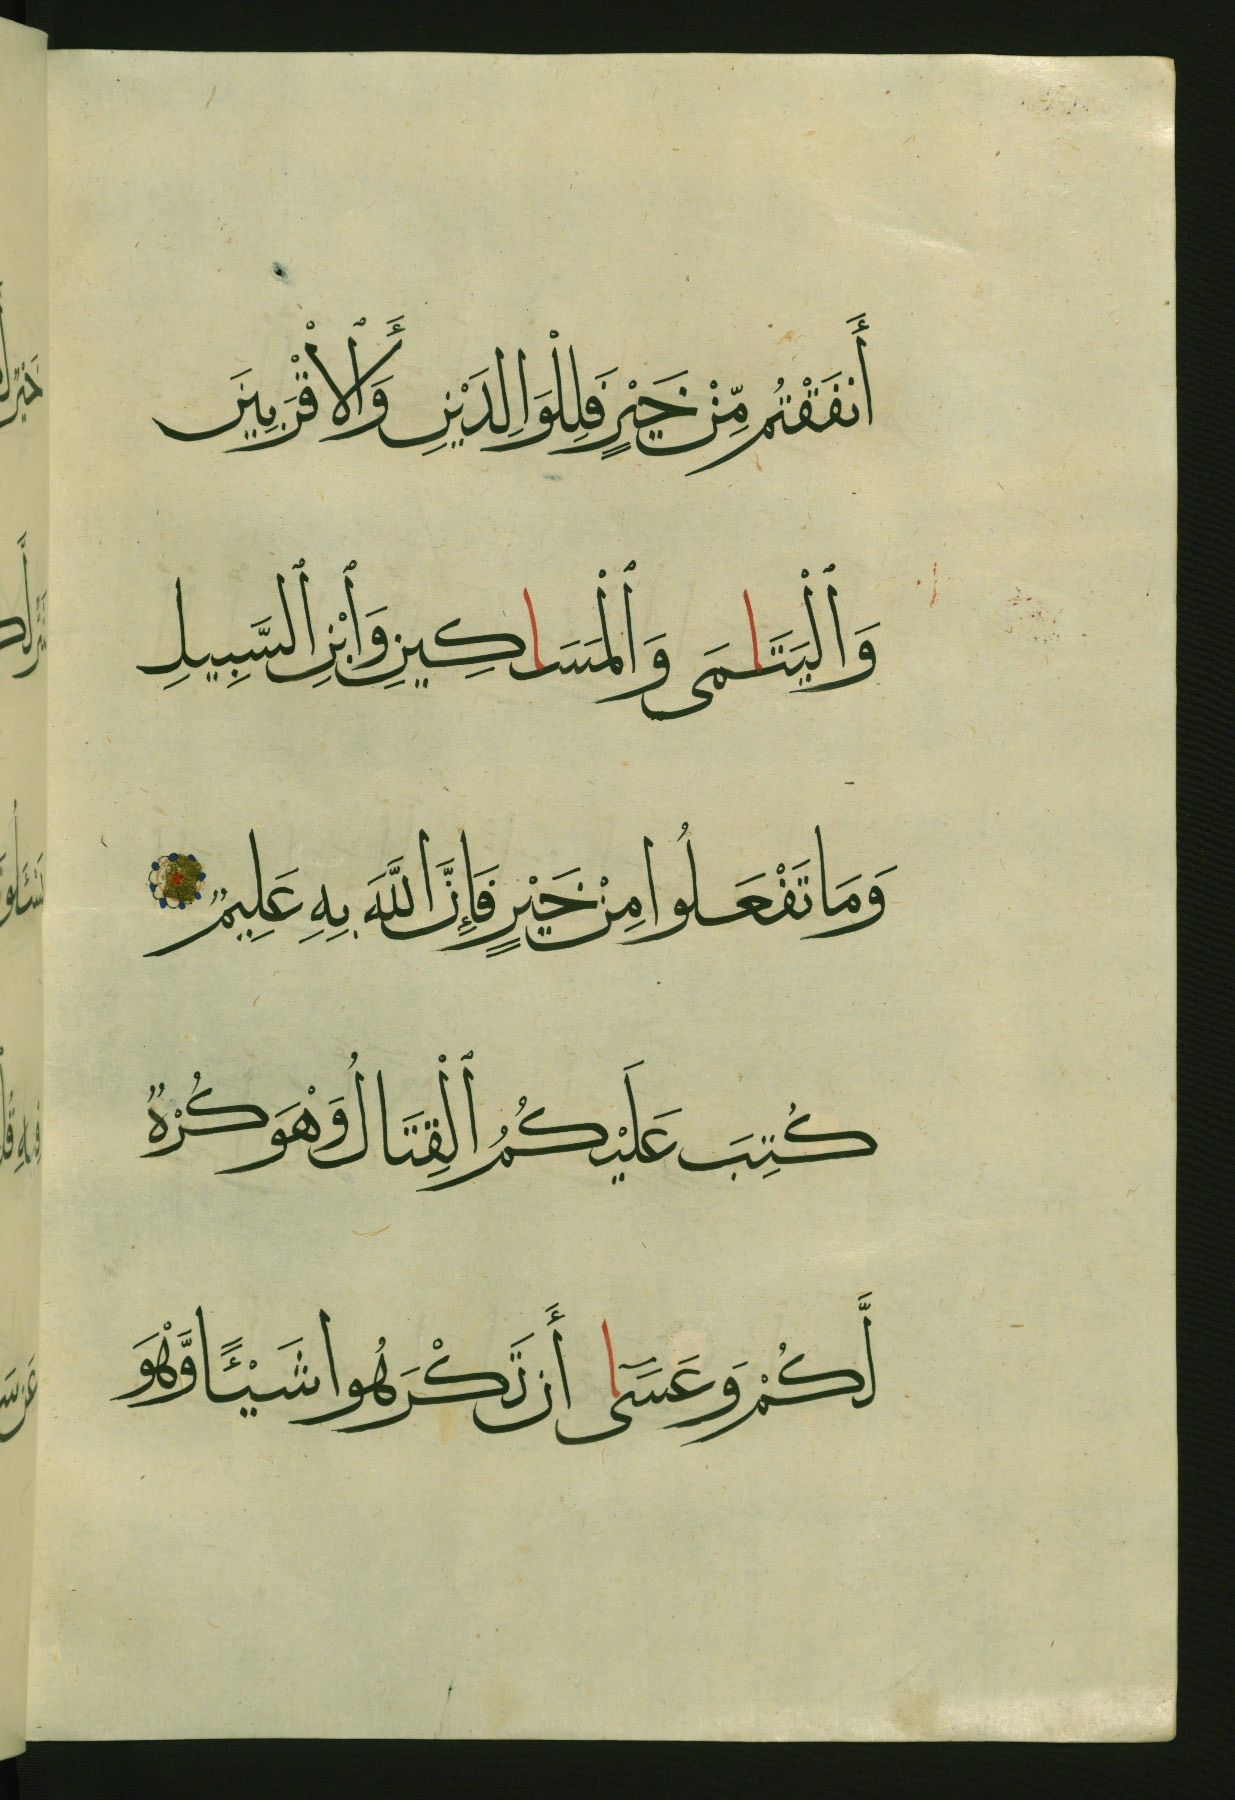 أَنفَقْتُم مِّنْ خَيْرٍ فَلِلْوَالِدَيْنِ وَٱلْأَقْرَبِينَ
وَٱلْيَتَامَى وَٱلْمَسَاكِينِ وَٱبْنِ ٱلسَّبِيلِ
وَمَا تَفْعَلُوا مِنْ خَيْرٍ فَإِنَّ اللَّهَ بِهِ عَلِيمٌ
كُتِبَ عَلَيْكُمُ ٱلْقِتَالُ وَهْوَ كُرْهٌ
لَّكُمْ وَعَسَىٰٓ أَن تَكْرَهُوا شَيْـًٔا وَّهْوَ